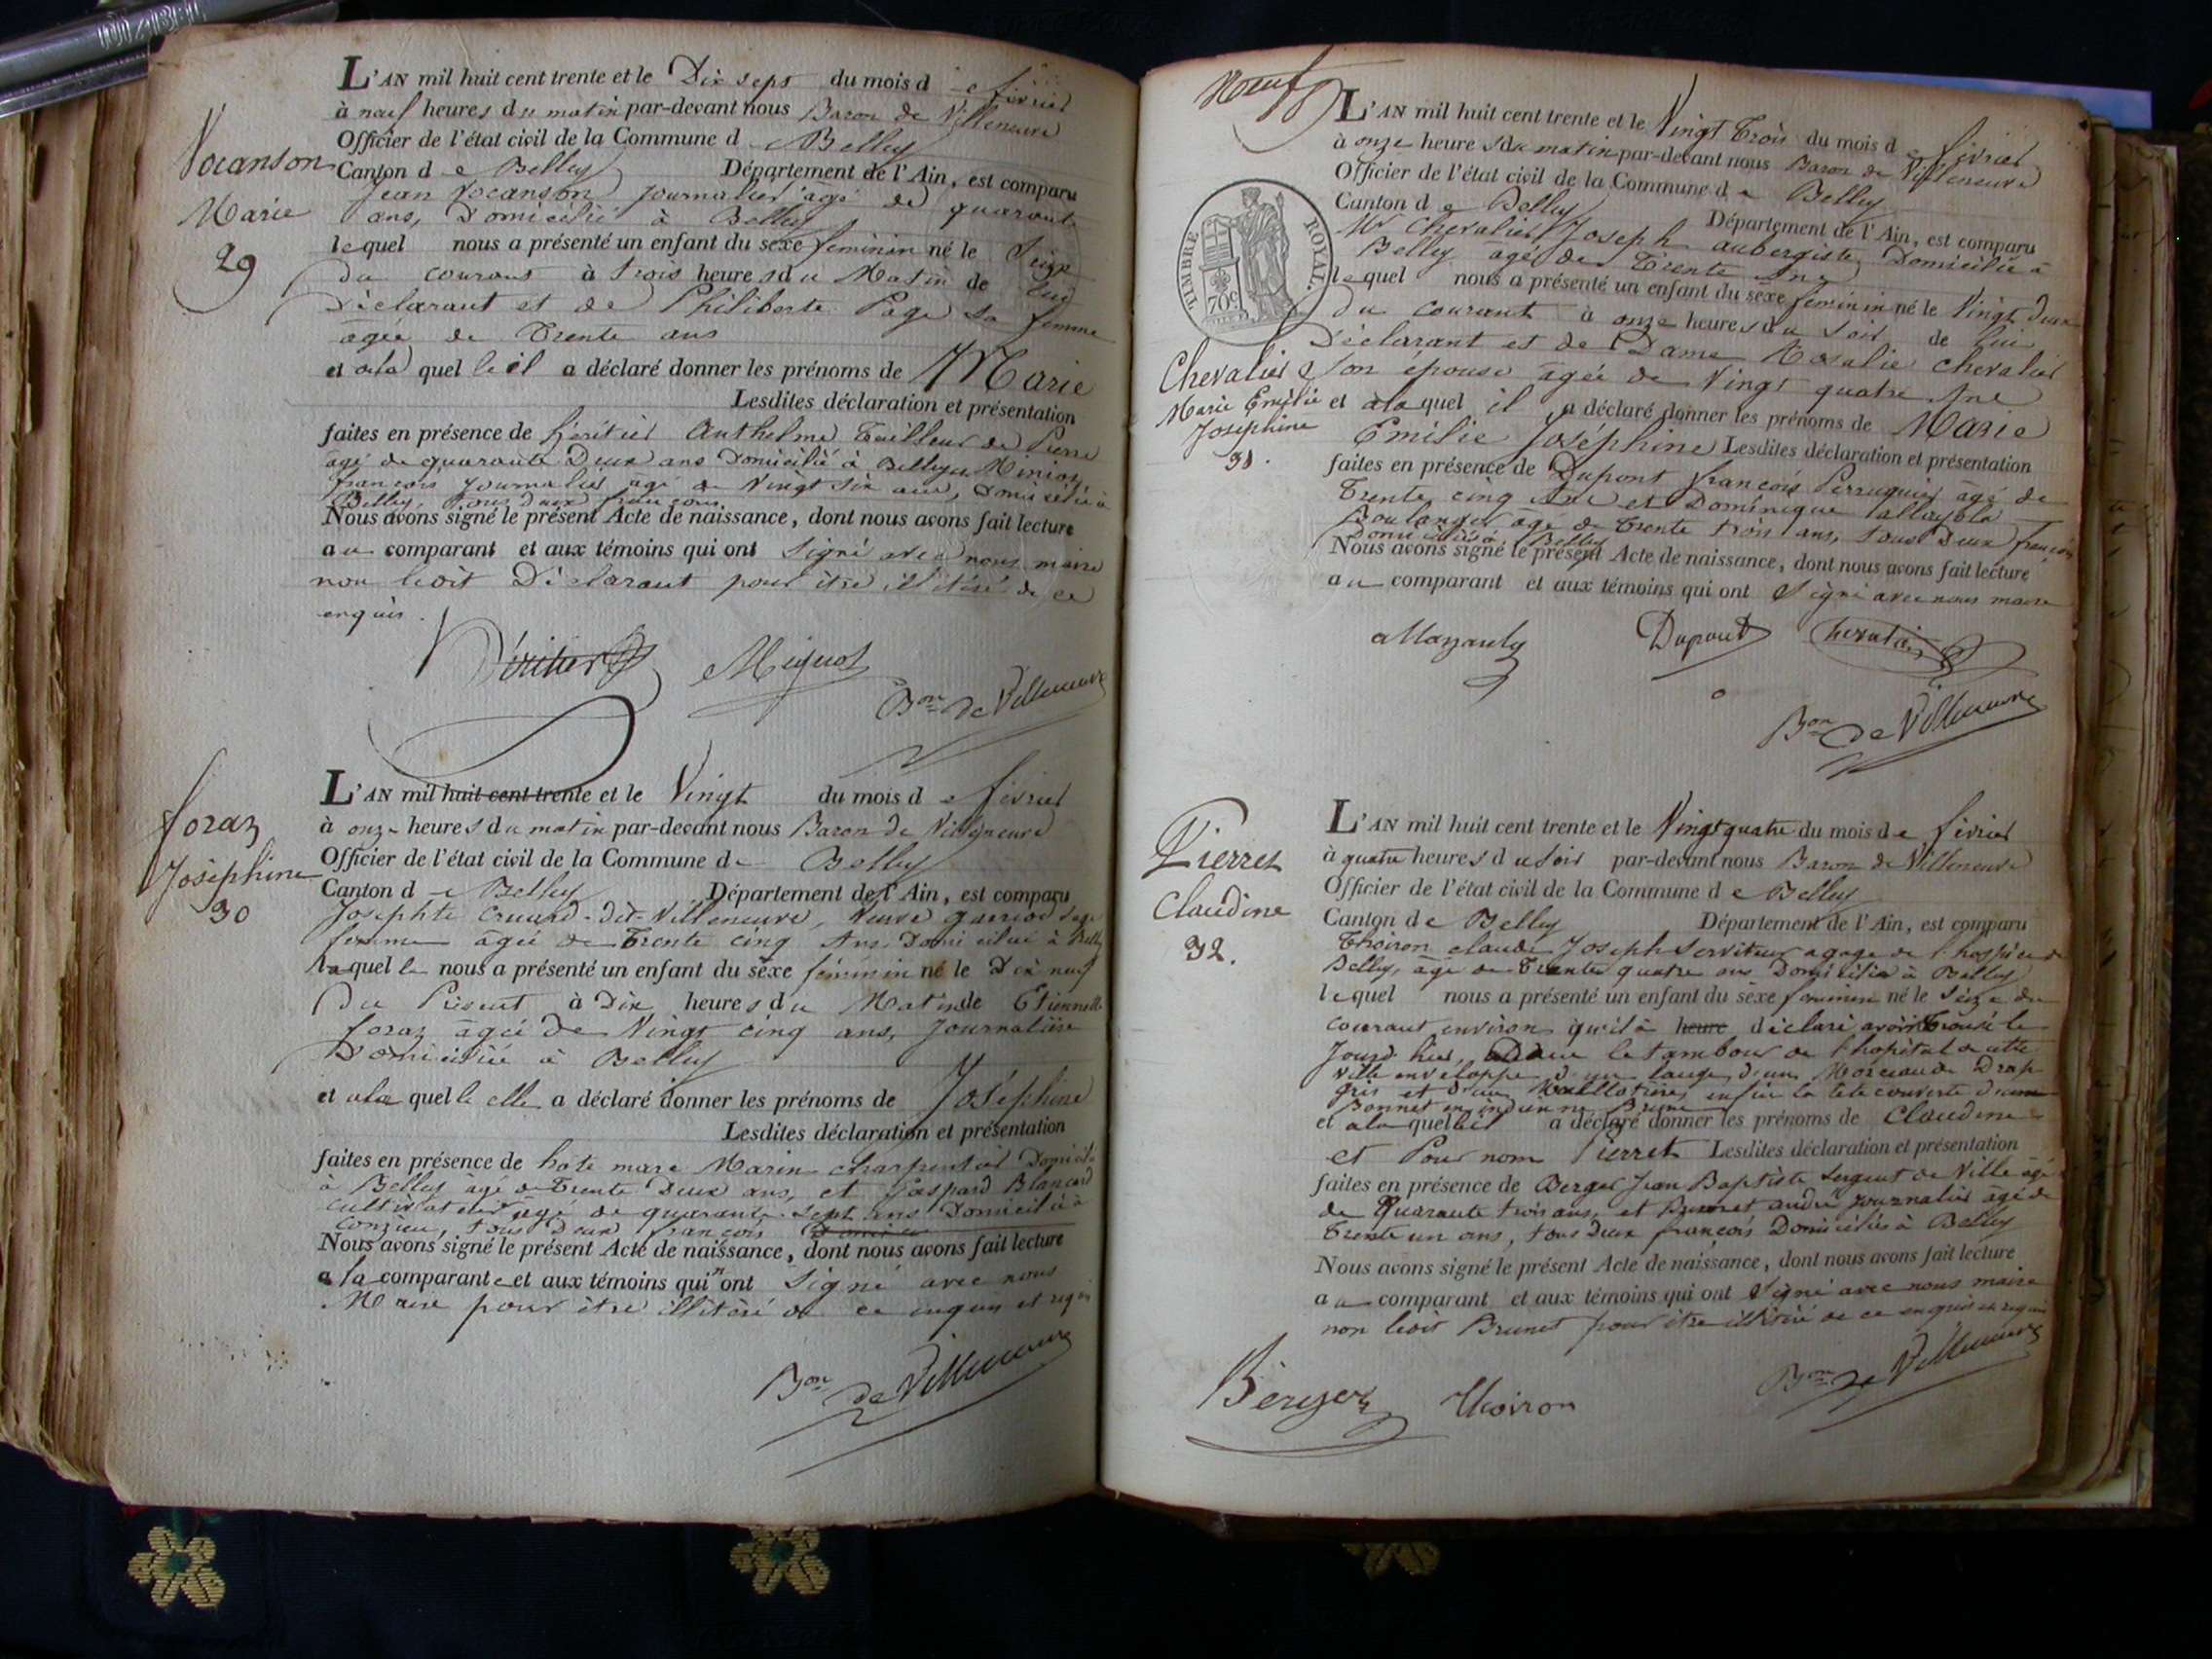 L'AN mil huit cent trente et le Dix sept du mois de février
à neuf heures du matin par-devant nous Baron de Villeneuve
Officier de l'état civil de la Commune de Belley
Canton de Belley Département de l'Ain, est comparu
Jean Vocanson journalier agé de quarante
ans, Domicilié à Belley
lequel nous a présenté un enfant du sexe féminin né le Seize
du courant à trois heures du Matin de lui
Déclarant et de Philiberte Page sa femme
agée de Trente ans
et à la quelle il a déclaré donner les prénoms de Marie
Lesdites déclaration et présentation
faites en présence de héritier Anthelme Tailleur de Pierre
agé de quarante Deux ans Domicilié à Belley
françois journalier agé de Vingt six ans, Domicilié à
Belley, tous deux françois
Nous avons signé le présent Acte de naissance, dont nous avons fait lecture
au comparant et aux témoins qui ont signé avec nous maire
non ledit Déclarant pour être illitéré de ce
enquis.
Vocanson
Marie
29
Héritier Mignot
Bon de Villeneuve
L'AN mil huit cent trente et le Vingt du mois de février
à onze heures du matin par-devant nous Baron de Villeneuve
Officier de l'état civil de la Commune de Belley
Canton de Belley Département de l'Ain, est comparu
Josephte Cruard-dit-Villeneuve, Veuve sage
femme agée de Trente cinq Ans Domiciliée à Belley
laquelle nous a présenté un enfant du sexe féminin né le Dix neuf
Du Présent à Dix heures du Matin de Etiennette
foraz agée de Vingt cinq ans, Journalière
Domiciliée à Belley
et à la quelle elle a déclaré donner les prénoms de Joséphine
Lesdites déclaration et présentation
faites en présence de hote marc Marin charpentier Domicilié
à Belley agé de Trente Deux ans, et Gaspard Blancard
cultivateur agé de quarante sept ans Domicilié à
Conzieu, tous Deux françois
Nous avons signé le présent Acte de naissance, dont nous avons fait lecture
a la comparante et aux témoins qui n'ont signé avec nous
Maire pour être illitéré de ce enquis et requis
foraz
Joséphine
30
Bon de Villeneuve
Neuf
L'AN mil huit cent trente et le Vingt Trois du mois de février
à onze heures du matin par-devant nous Baron de Villeneuve
Officier de l'état civil de la Commune de Belley
Canton de Belley Département de l'Ain, est comparu
Mr Chevalier Joseph aubergiste Domicilié à
Belley agé de Trente Ans
lequel nous a présenté un enfant du sexe féminin né le Vingt Deux
Du courant à onze heures du soir de lui
Déclarant et de Dame Rosalie Chevalier
son épouse agée de Vingt quatre Ans
et à la quel il a déclaré donner les prénoms de Marie
Emélie Joséphine Lesdites déclaration et présentation
faites en présence de Dupont françois Perruquier âgé de
Trente cinq Ans et Dominique
Boulanger âgé de Trente trois ans, tous Deux françois
Domiciliés à Belley
Nous avons signé le présent Acte de naissance, dont nous avons fait lecture
au comparant et aux témoins qui ont Signé avec nous maire
TIMBRE ROYAL
70c
Chevalier
Marie Emélie
Joséphine
31.
Dupont Chevalier
Bon de Villeneuve
L'AN mil huit cent trente et le Vingt quatre du mois de février
à quatre heures du soir par-devant nous Baron de Villeneuve
Officier de l'état civil de la Commune de Belley
Canton de Belley Département de l'Ain, est comparu
Thoiron claude Joseph Serviteur a gage de l'hospice de
Belley, âgé de Trente quatre ans Domicilié à Belley
lequel nous a présenté un enfant du sexe féminin né le Seize du
courant environ qu'il à heure déclaré avoir trouvé le
Jourd hui, Dans le tambour de l'hopital de cette
ville enveloppé d'un lange, d'un Morceau de Drap
gris et d'un Maillotière, enfin la tête couverte d'un
Bonnet en indienne Brune
et à la quelle il a déclaré donner les prénoms de Claudine
et Pour nom Pierret Lesdites déclaration et présentation
faites en présence de Berger Jean Baptiste Sergent de Ville âgé
de Quarante trois ans, et Brunet andré Journalier âgé de
Trente un ans, tous Deux françois Domiciliés à Belley
Nous avons signé le présent Acte de naissance, dont nous avons fait lecture
au comparant et aux témoins qui ont Signé avec nous maire
non ledit Brunet pour être illitéré de ce enquis et requis
Pierret
Claudine
32.
Berger Thoiron
Bon de Villeneuve